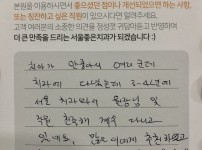 본원을 이용하시면서 좋으셨던 점이나 개선되었으면 하는 사항,
또는 칭찬하고 싶은 직원이 있으시다면 알려주세요.
고객 여러분의 소중한 의견을 정성껏 귀담아듣고 반영하여
더 큰 만족을 드리는 서울좋은치과가 되겠습니다 :)
치아가 안좋아서 여러군데
치과에 다녔는데 3-4군데
서울 치과와서 원장님 및
직원 친절하게 해주셨다고
있네요, 많은 이에게 추천하겠고